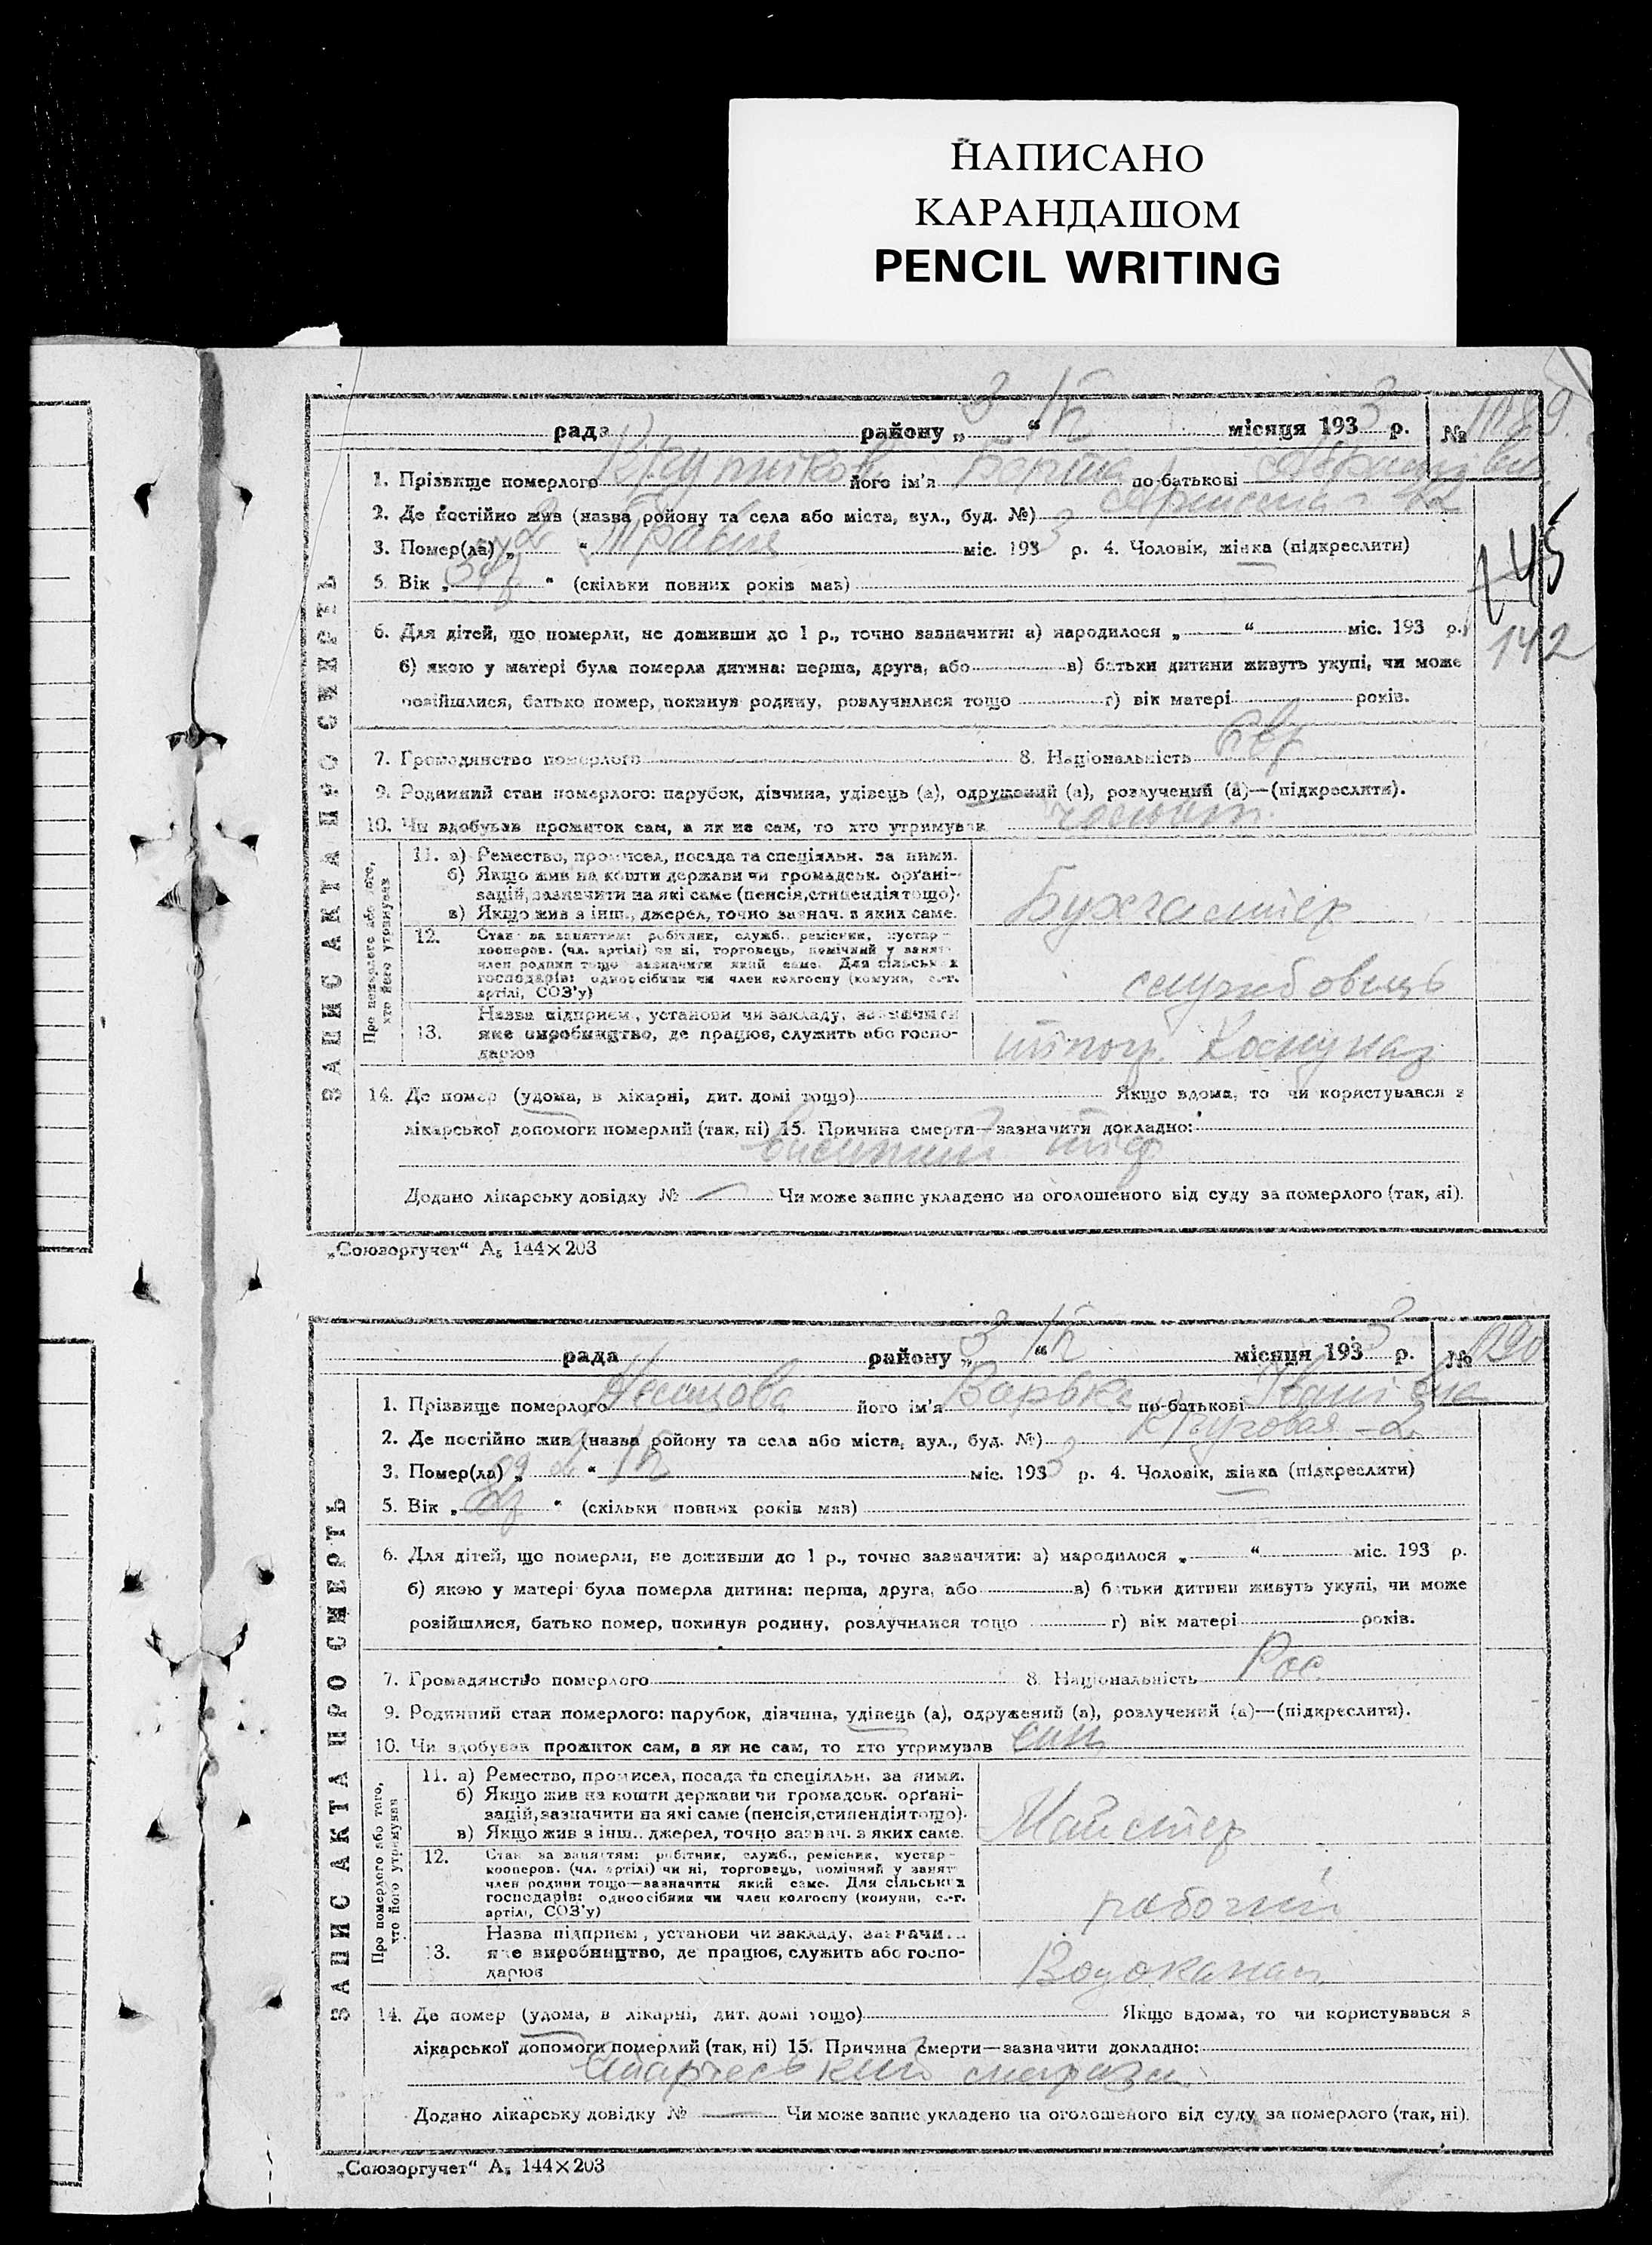 НАПИСАНО
КАРАНДАШОМ
PENCIL WRITING
рада району „ 3 “ місяця 1933 р. № 1089
1. Прізвище померлого його ім'я Берта по-батькові
2. Де постійно жив (назва ройону та села або міста, вул., буд. №)
3. Помер(ла) „ 2 “ Травня міс. 1933 р. 4. Чоловік, жінка (підкреслити)
145
5. Вік „ “ (скільки повних років мав)
6. Для дітей, що померли, не доживши до 1 р., точно зазначити: а) народилося „ “ міс. 193 р.
142
б) якою у матері була померла дитина: перша, друга, або в) батьки дитини живуть укупі, чи може
розійшлися, батько помер, покинув родину, розлучилися тощо г) вік матері років.
7. Громадянство померлого 8. Національність
9. Родинний стан померлого: парубок, дівчина, удівець (а), одружений (а), розлучений (а)—(підкреслити).
10. Чи здобував прожиток сам, а як не сам, то хто утримував чоловік
ЗАПИС АКТА ПРО СМЕРТЬ
Про померлого або того, хто його утримував
11. а) Ремество, промисел, посада та спеціяльн. за ними.
б) Якщо жив на кошти держави чи громадськ. орґані-
зацій, зазначити на які саме (пенсія, стипендія тощо).
в) Якщо жив з інш., джерел, точно зазнач. з яких саме.
Бухгалтер
12. Стан за заняттям: робітник, служб., ремісник, кустар-
кооперов. (чл. артілі) чи ні, торговець, помічний у занят.
член родини тощо зазначити який саме. Для сільських
господарів: одноосібник чи член колгоспу (комуни, с.-г.
артілі, СОЗ'у)
службовець
13. Назва підприєм., установи чи закладу, зазначити
яке виробництво, де працює, служить або госпо-
дарює
14. Де помер (удома, в лікарні, дит. домі тощо) Якщо вдома, то чи користувався з
лікарської допомоги померлий (так, ні) 15. Причина смерти—зазначити докладно:
висипний тиф
Додано лікарську довідку № — Чи може запис укладено на оголошеного від суду за померлого (так, ні).
„Союзоргучет“ А₅ 144×203
рада району „ 3 “ місяця 1933 р. № 1090
1. Прізвище померлого його ім'я по-батькові Іванівна
2. Де постійно жив (назва ройону та села або міста, вул., буд. №) Круговая - 2
3. Помер(ла) „ 2 “ міс. 1933 р. 4. Чоловік, жінка (підкреслити)
5. Вік „ “ (скільки повних років мав)
6. Для дітей, що померли, не доживши до 1 р., точно зазначити: а) народилося „ “ міс. 193 р.
б) якою у матері була померла дитина: перша, друга, або в) батьки дитини живуть укупі, чи може
розійшлися, батько помер, покинув родину, розлучилися тощо г) вік матері років.
7. Громадянство померлого 8. Національність Рос
9. Родинний стан померлого: парубок, дівчина, удівець (а), одружений (а), розлучений (а)—(підкреслити).
10. Чи здобував прожиток сам, а як не сам, то хто утримував син
ЗАПИС АКТА ПРО СМЕРТЬ
Про померлого або того, хто його утримував
11. а) Ремество, промисел, посада та спеціяльн. за ними.
б) Якщо жив на кошти держави чи громадськ. орґані-
зацій, зазначити на які саме (пенсія, стипендія тощо).
в) Якщо жив з інш.. джерел, точно зазнач. з яких саме.
Майстер
12. Стан за заняттям: робітник, служб., ремісник, кустар-
кооперов. (чл. артілі) чи ні, торговець, помічний у занят.
член родини тощо—зазначити який саме. Для сільських
господарів: одноосібник чи член колгоспу (комуни, с.-г.
артілі, СОЗ'у)
рабочий
13. Назва підприєм., установи чи закладу, зазначи...
яке виробництво, де працює, служить або госпо-
дарює
Водоканал
14. Де помер (удома, в лікарні, дит. домі тощо) Якщо вдома, то чи користувався з
лікарської допомоги померлий (так, ні) 15. Причина смерти—зазначити докладно:
Додано лікарську довідку № — Чи може запис укладено на оголошеного від суду за померлого (так, ні).
„Союзоргучет“ А₅ 144×203